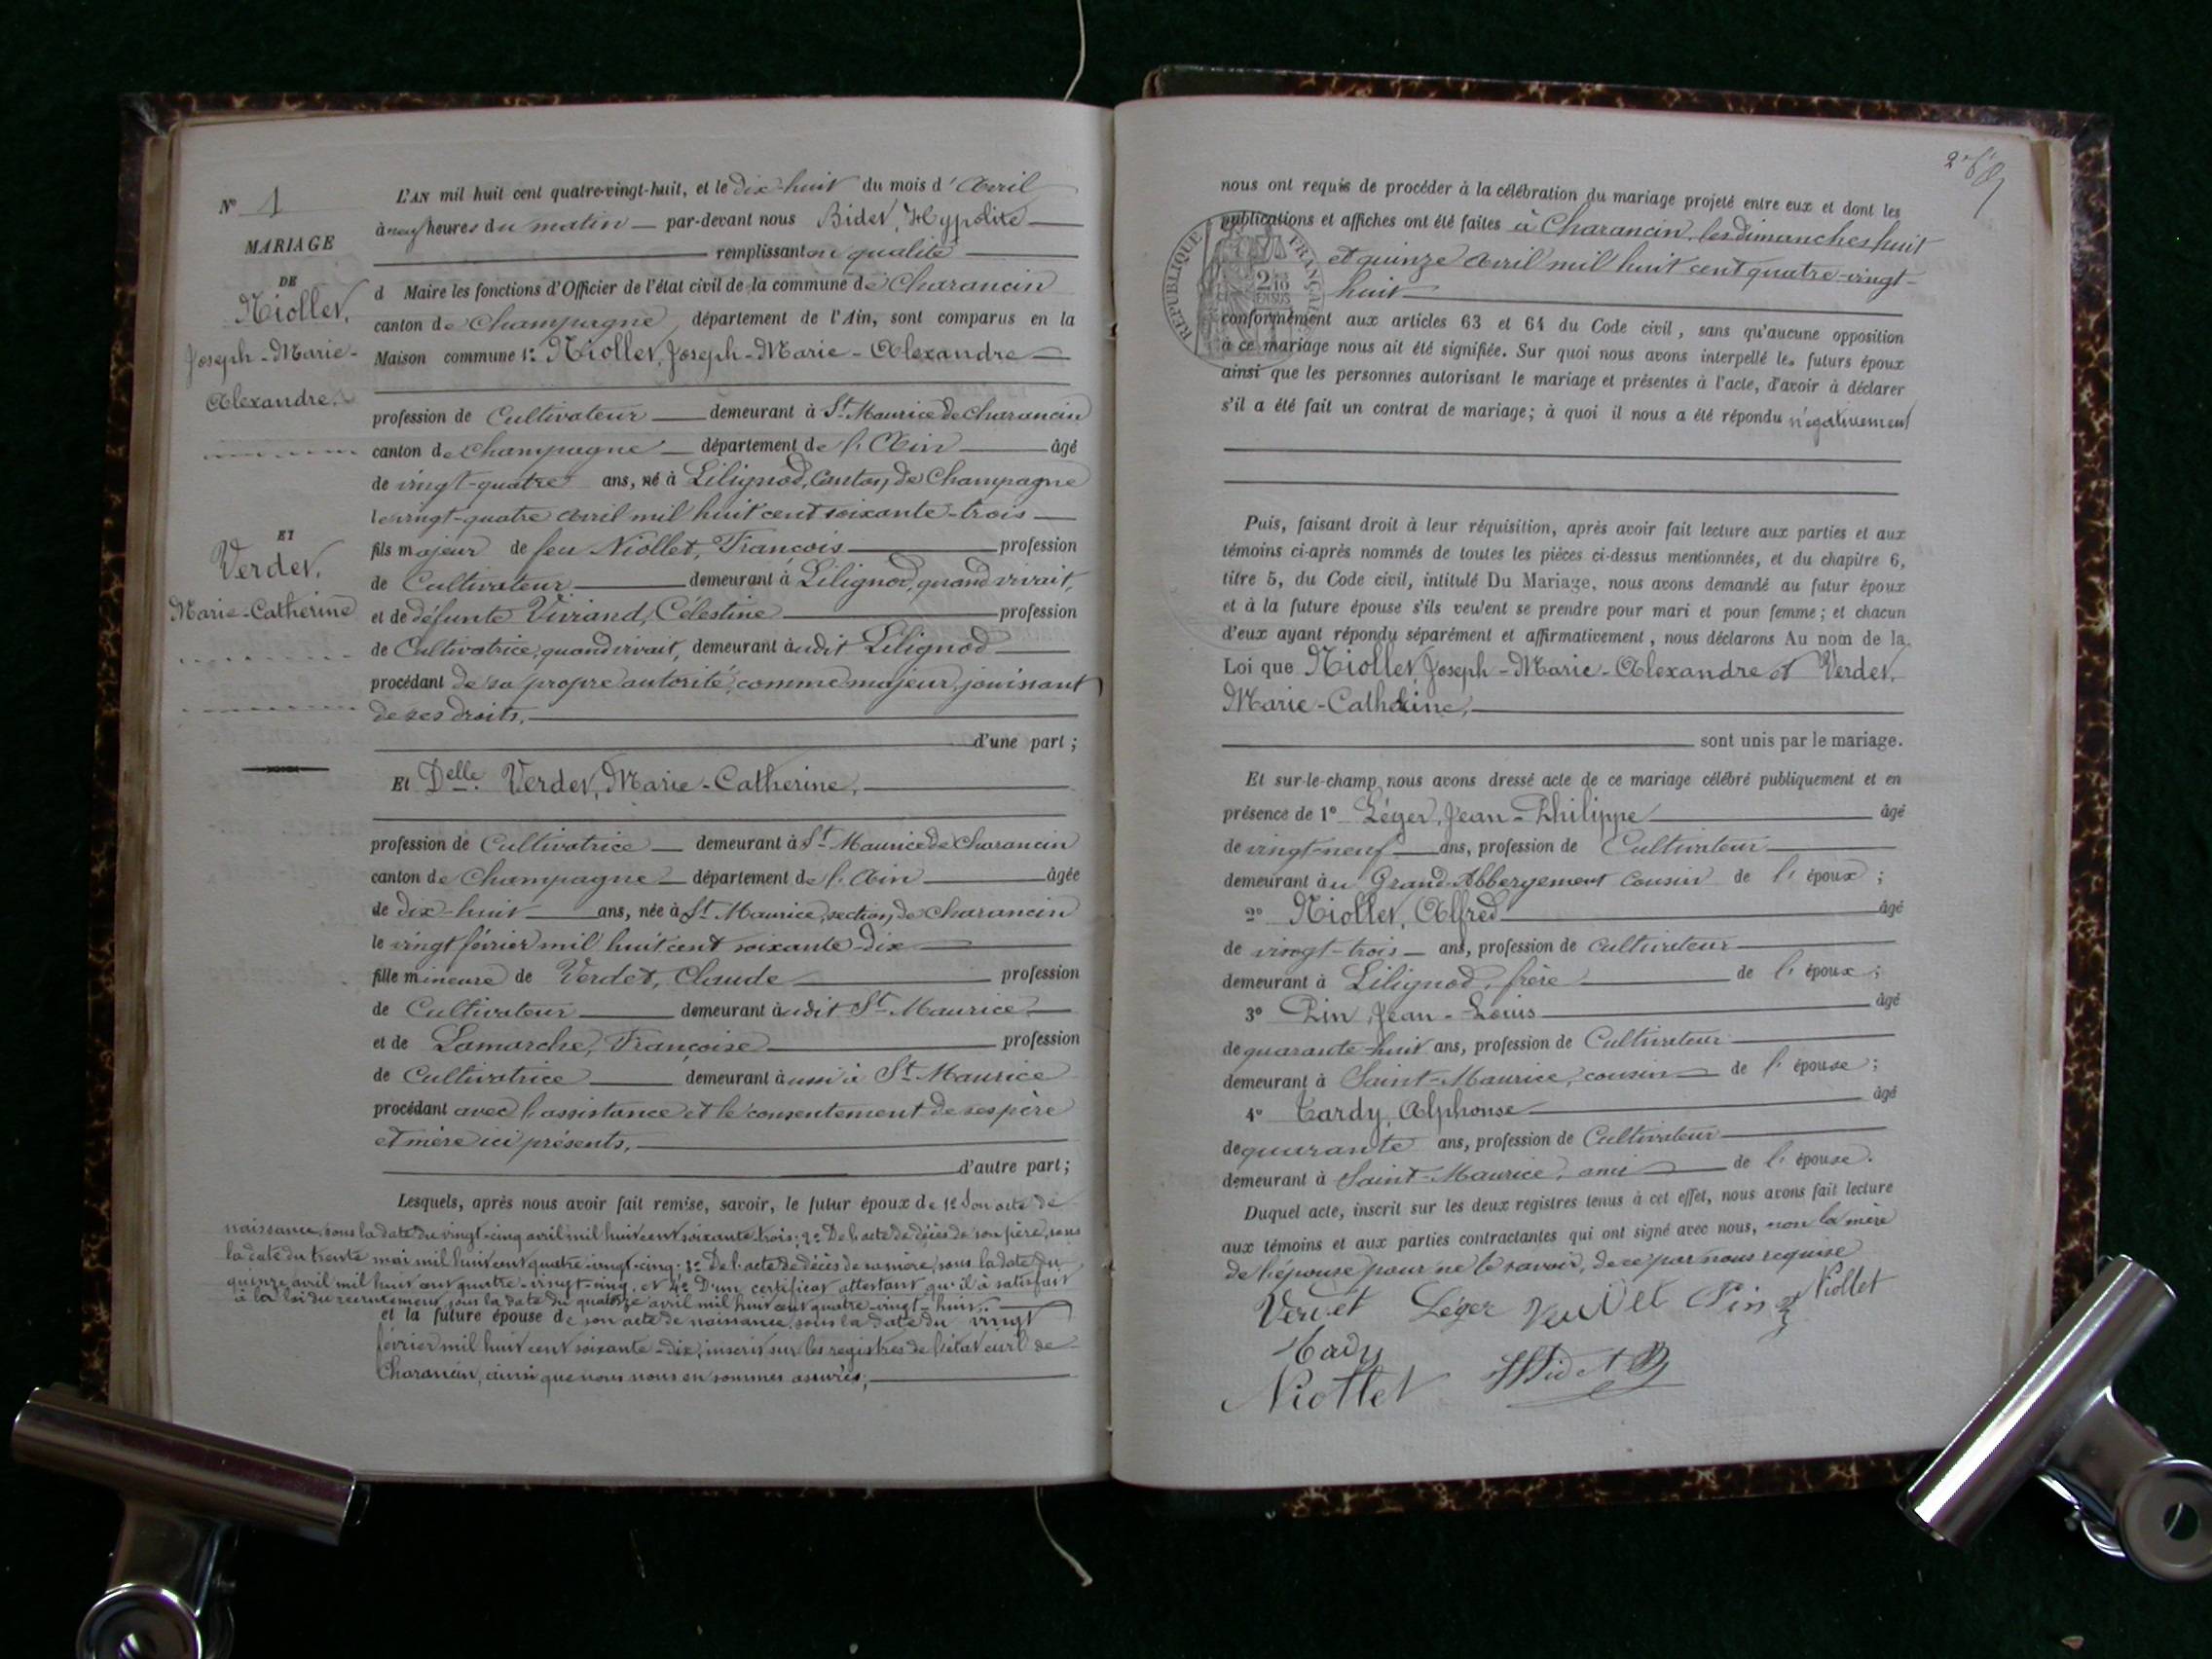 N° 1
MARIAGE
DE
Niollet,
Joseph-Marie-
Alexandre.
ET
Verdet,
Marie-Catherine
L'AN mil huit cent quatre-vingt-huit, et le dix-huit du mois d'Avril
à neuf heures du matin par-devant nous Bidet, Hypolite
remplissant en qualité
d Maire les fonctions d'Officier de l'état civil de la commune de Charancin
canton de Champagne, département de l'Ain, sont comparus en la
Maison commune 1° Niollet, Joseph-Marie-Alexandre
profession de Cultivateur demeurant à St Maurice de Charancin
canton de Champagne département de l'Ain âgé
de vingt-quatre ans, né à Lilignod, Canton de Champagne
le vingt-quatre avril mil huit cent soixante-trois
fils majeur de feu Niollet, François profession
de Cultivateur demeurant à Lilignod, quand vivait,
et de défunte Vuirand, Célestine profession
de Cultivatrice, quand vivait, demeurant audit Lilignod
procédant de sa propre autorité, comme majeur, jouissant
de ses droits,
d'une part;
Et Delle Verdet, Marie-Catherine,
profession de Cultivatrice demeurant à St Maurice de Charancin
canton de Champagne département de l'Ain âgée
de dix-huit ans, née à St Maurice, section de Charancin
le vingt février mil huit cent soixante-dix
fille mineure de Verdet, Claude profession
de Cultivateur demeurant audit St Maurice
et de Lamarche, Françoise profession
de Cultivatrice demeurant aussi à St Maurice
procédant avec l'assistance et le consentement de ses père
et mère ici présents,
d'autre part;
Lesquels, après nous avoir fait remise, savoir, le futur époux de 1° Son acte de
naissance, sous la date du vingt-cinq avril mil huit cent soixante-trois; 2° De l'acte de décès de son père, sous
la date du trente mai mil huit cent quatre-vingt-cinq; 3° De l'acte de décès de sa mère, sous la date du
quinze avril mil huit cent quatre-vingt-cinq, et 4° D'un certificat attestant qu'il à satisfait
à la loi du recrutement, sous la date du quatorze avril mil huit cent quatre-vingt-huit;
et la future épouse de son acte de naissance, sous la date du vingt
février mil huit cent soixante-dix, inscrit sur les registres de l'état civil de
Charancin, ainsi que nous nous en sommes assurés,
nous ont requis de procéder à la célébration du mariage projeté entre eux et dont les
publications et affiches ont été faites à Charancin, les dimanches huit
et quinze Avril mil huit cent quatre-vingt-
huit
RÉPUBLIQUE FRANÇAISE
conformément aux articles 63 et 64 du Code civil, sans qu'aucune opposition
à ce mariage nous ait été signifiée. Sur quoi nous avons interpellé les futurs époux
ainsi que les personnes autorisant le mariage et présentes à l'acte, d'avoir à déclarer
s'il a été fait un contrat de mariage; à quoi il nous a été répondu négativement
Puis, faisant droit à leur réquisition, après avoir fait lecture aux parties et aux
témoins ci-après nommés de toutes les pièces ci-dessus mentionnées, et du chapitre 6,
titre 5, du Code civil, intitulé Du Mariage, nous avons demandé au futur époux
et à la future épouse s'ils veulent se prendre pour mari et pour femme; et chacun
d'eux ayant répondu séparément et affirmativement, nous déclarons Au nom de la
Loi que Niollet, Joseph-Marie-Alexandre et Verdet,
Marie-Catherine,
sont unis par le mariage.
Et sur-le-champ nous avons dressé acte de ce mariage célébré publiquement et en
présence de 1° Léger, Jean-Philippe âgé
de vingt-neuf ans, profession de Cultivateur
demeurant au Grand-Abbergement Cousin de l'époux;
2° Niollet, Alfred âgé
de vingt-trois ans, profession de Cultivateur
demeurant à Lilignod, frère de l'époux;
3° Pin, Jean-Louis âgé
de quarante-huit ans, profession de Cultivateur
demeurant à Saint-Maurice, cousin de l'épouse;
4° Tardy, Alphonse âgé
de quarante ans, profession de Cultivateur
demeurant à Saint-Maurice, ami de l'épouse.
Duquel acte, inscrit sur les deux registres tenus à cet effet, nous avons fait lecture
aux témoins et aux parties contractantes qui ont signé avec nous, non la mère
de l'épouse pour ne le savoir, de ce par nous requise
Verdet Léger Verdet Pin Niollet
Niollet